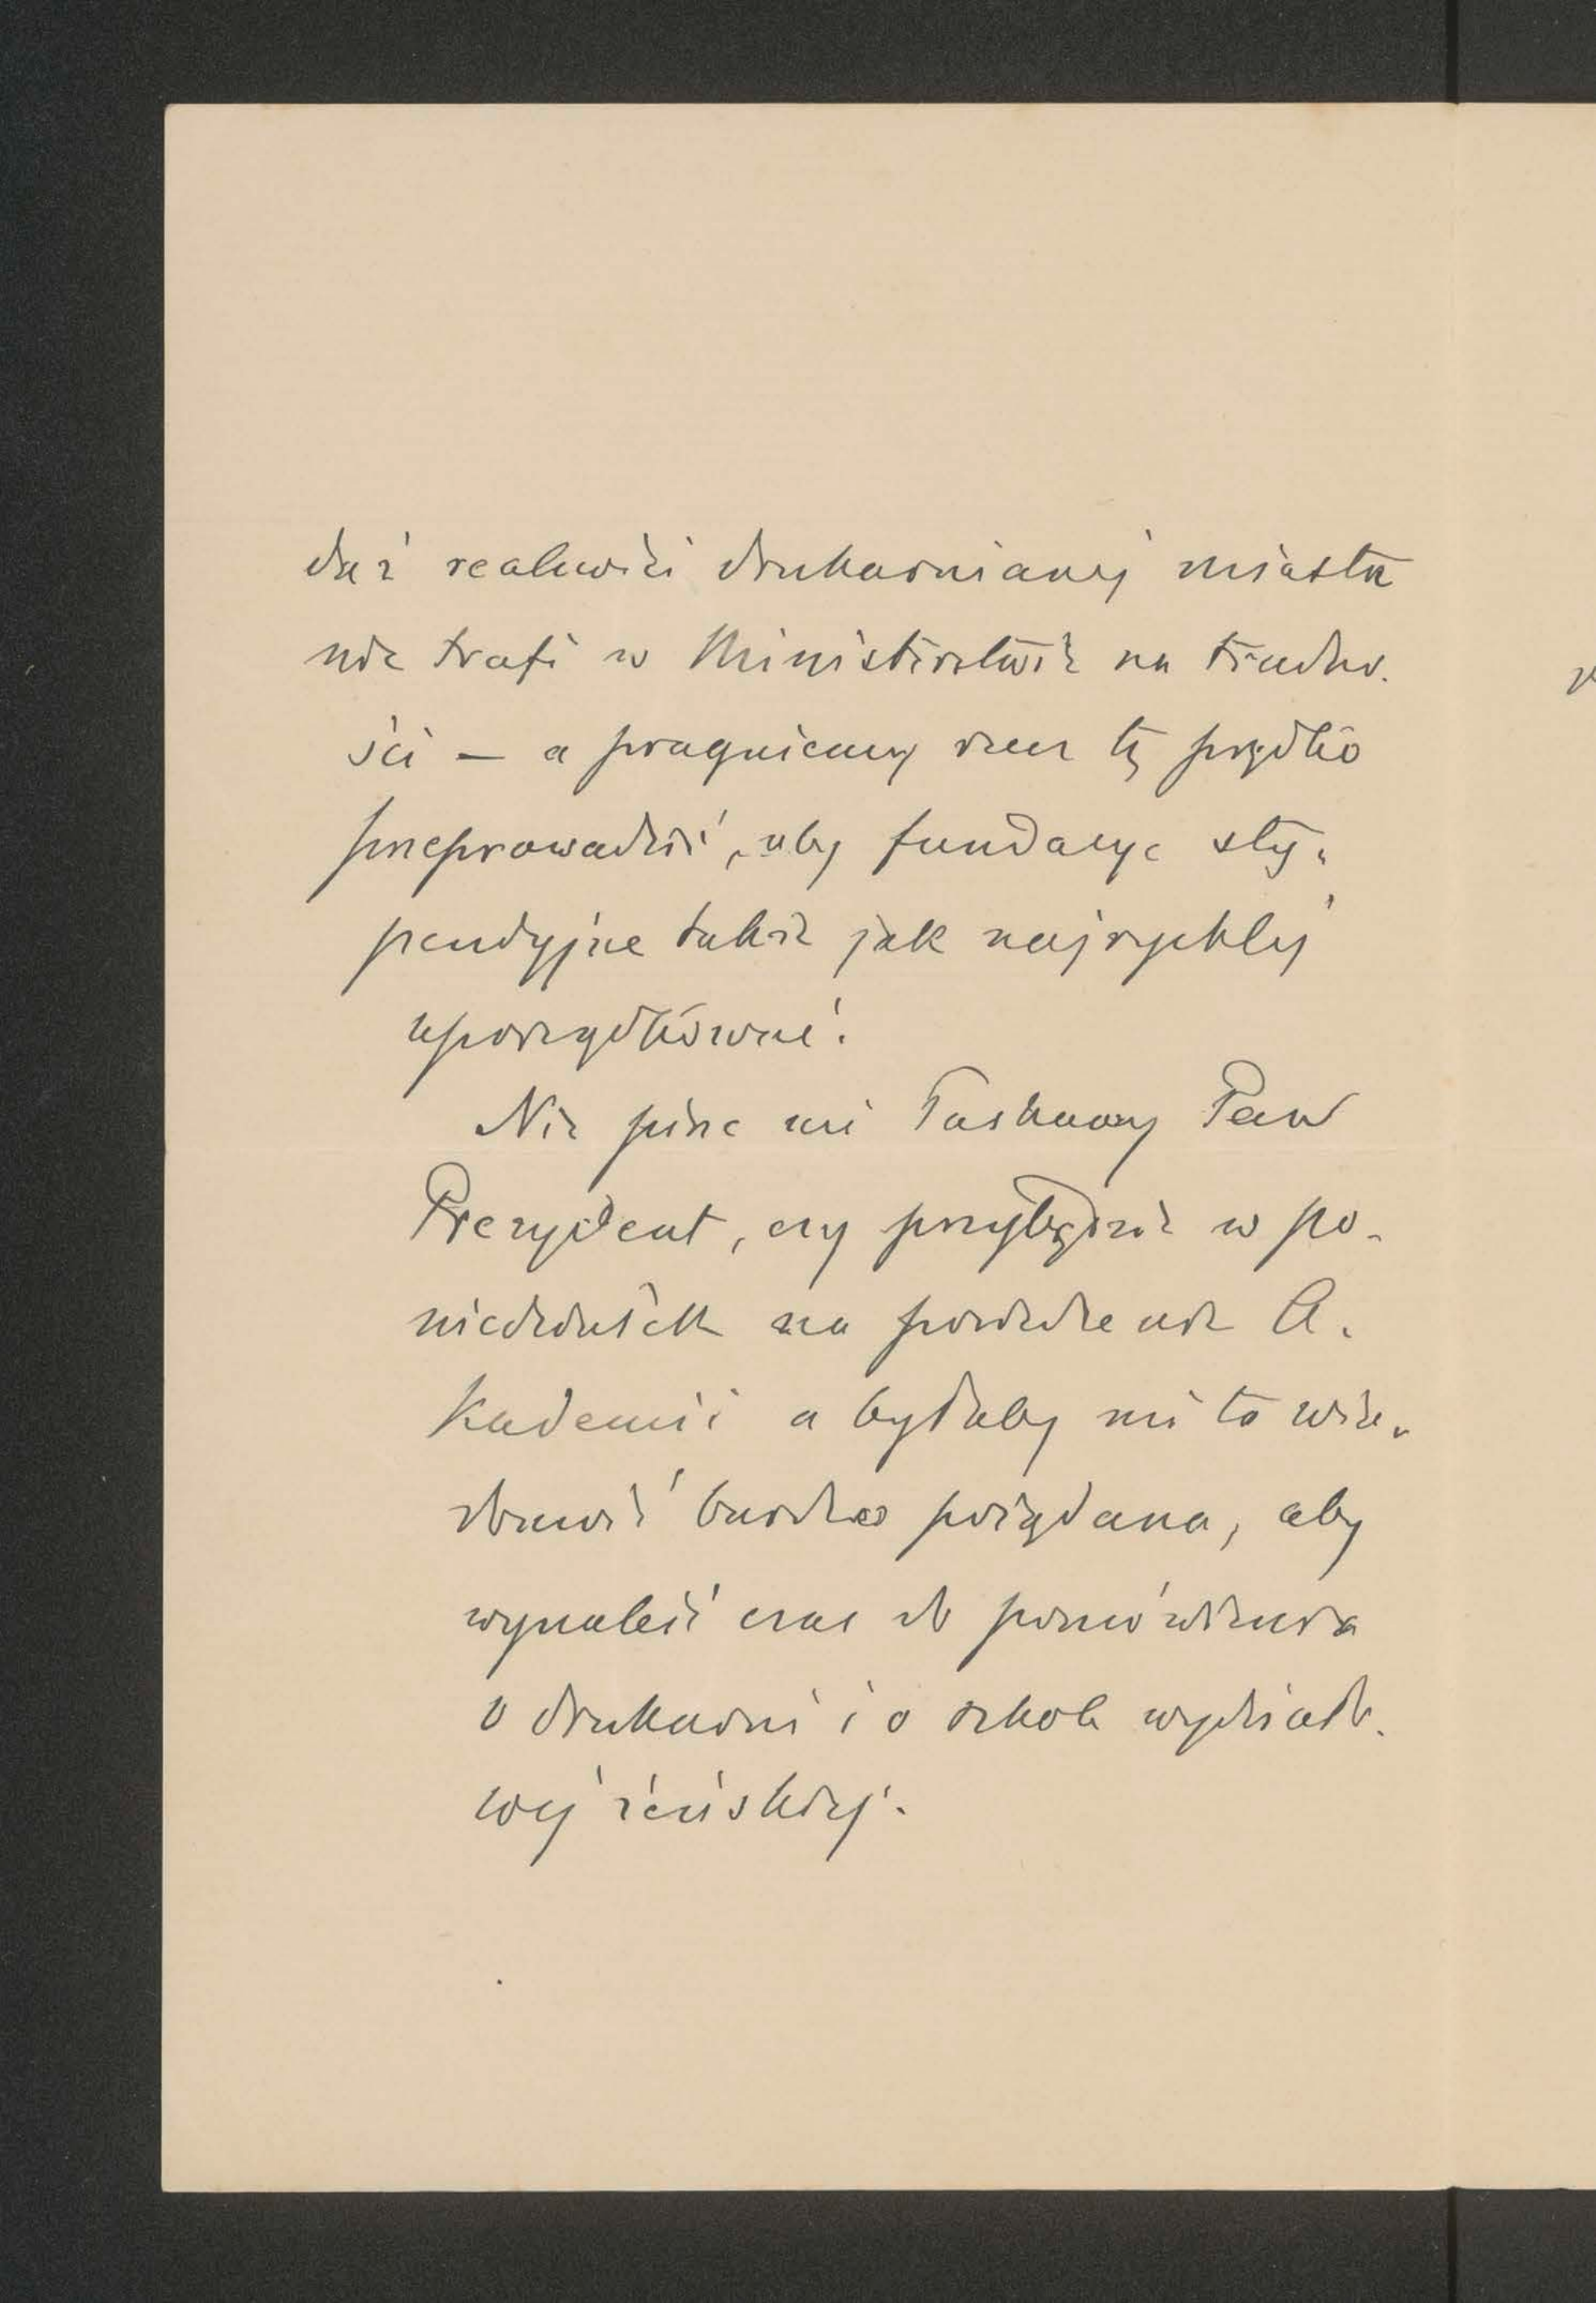 daż realności drukarnianej miasta
nie trafi w Ministerstwie na trudno-
ści — a pragniemy rzecz tę prędko
przeprowadzić, aby fundacye sty-
pendyjne także jak najrychlej
uporządkować.
Nie pisze mi Łaskawy Pan
Prezydent, czy przybędzie w po-
niedziałek na posiedzenie A-
kademii a byłaby mi ta wia-
domość bardzo pożądana, aby
wynaleść czas do pomówienia
o drukarni i o szkole wydziało-
wej żeńskiej.